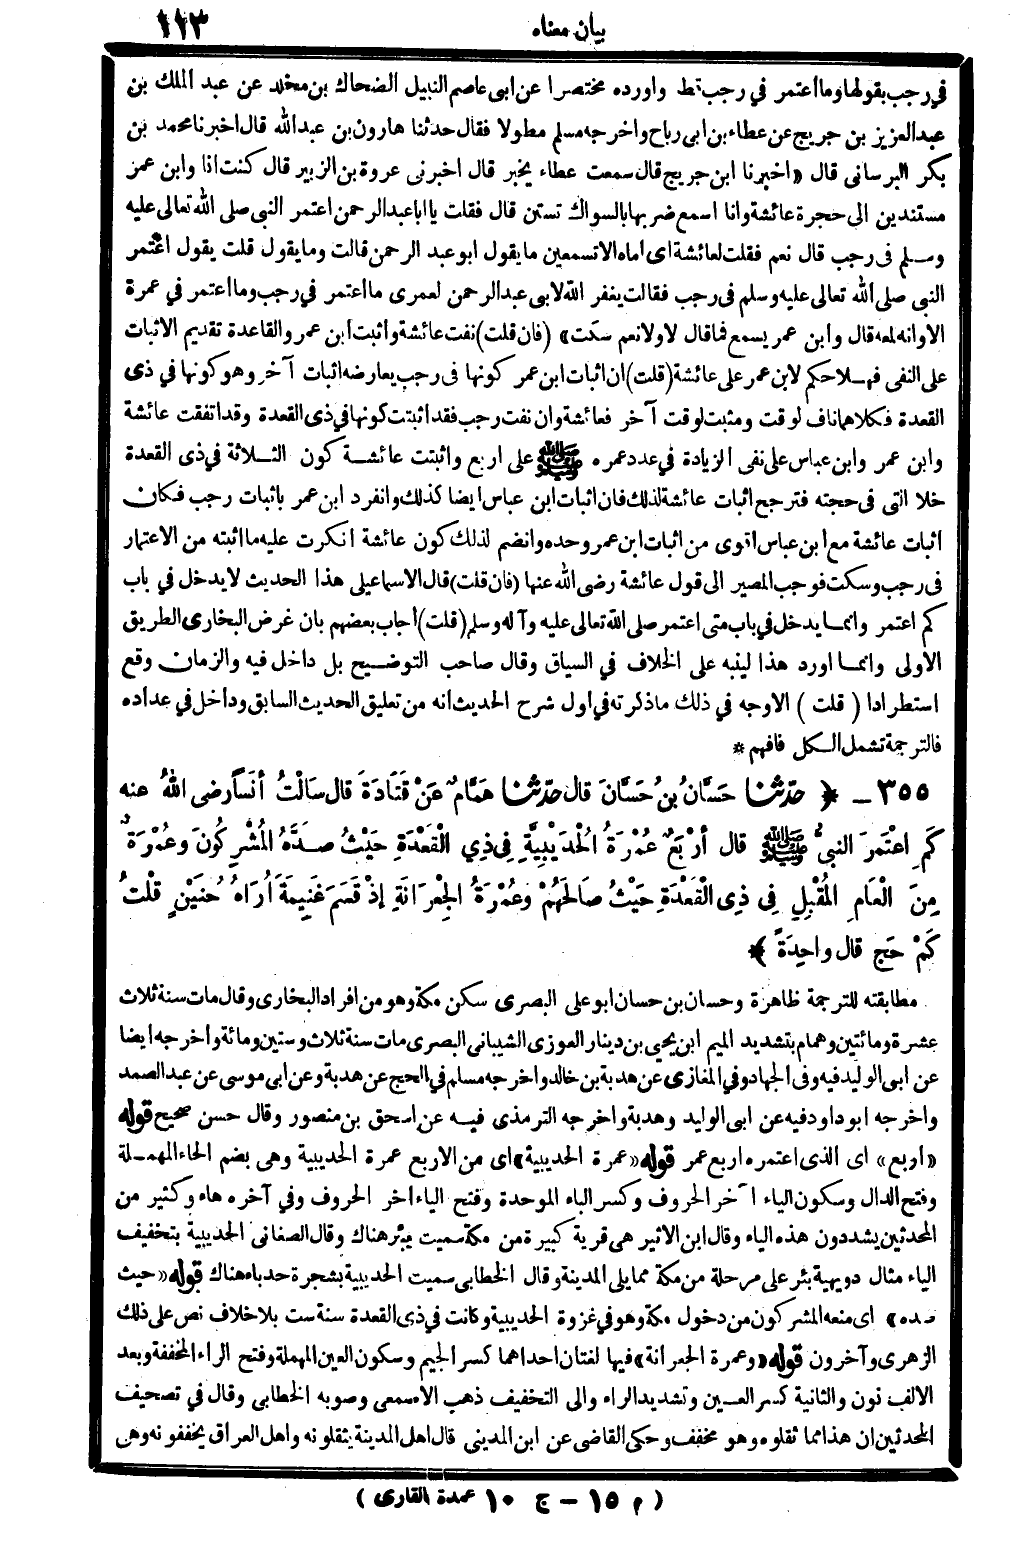 بيان معناه
١١٣
في رجب بقولها وما أعتمر في رجب قط وأورده مختصرا عن ابى عاصم النبيل الضحاك بن مخلد عن عبد الملك بن
عبدالعزيز بن جريج عن عطاء بن ابى رباح واخرجه مسلم مطولا فقال حدثنا هارون بن عبدالله قال اخبرنا محمد بن
بكر البرسانى قال «اخبرنا ابن جريج قال سمعت عطاء يخبر قال اخبرنى عروة بن الزبير قال كنت انا وابن عمر
مستندين الى حجرة عائشة وانا اسمع ضربها بالسواك تستن قال فقلت يا ابا عبد الرحمن اعتمر النبى صلى الله تعالى عليه
وسلم فى رجب قال نعم فقلت لعائشة اى اماه الا تسمعين ما يقول ابو عبد الرحمن قالت وما يقول قلت يقول اعتمر
النبى صلى الله تعالى عليه وسلم فى رجب فقالت يغفر الله لابى عبدالرحمن لعمرى ما اعتمر في رجب وما اعتمر في عمرة
الا وانه لمعه قال وابن عمر يسمع فما قال لا ولا نعم سكت» (فان قلت) نفت عائشة وأثبت ابن عمر والقاعدة تقديم الاثبات
على النفى فهلا حكم لابن عمر على عائشة (قلت) ان اثبات ابن عمر كونها فى رجب يعارضه اثبات آخر وهو كونها في ذى
القعدة فكلاهما ناف لوقت ومثبت لوقت آخر فعائشة وان نفت رجب فقد اثبتت كونها في ذى القعدة وقد اتفقت عائشة
وابن عمر وابن عباس على نفى الزيادة في عدد عمره ﷺ على اربع واثبتت عائشة كون الثلاثة في ذى القعدة
خلا التى فى حجته فترجح اثبات عائشة لذلك فان اثبات ابن عباس ايضا كذلك وانفرد ابن عمر باثبات رجب فكان
اثبات عائشة مع ابن عباس اقوى من اثبات ابن عمر وحده وانضم لذلك كون عائشة انكرت عليه ما اثبته من الاعتمار
فى رجب وسكت فوجب المصير الى قول عائشة رضى الله عنها (فان قلت) قال الاسماعيلى هذا الحديث لا يدخل في باب
كم اعتمر وانما يدخل في باب متى اعتمر صلى الله تعالى عليه وآله وسلم (قلت) أجاب بعضهم بان غرض البخارى الطريق
الاولى وانما اورد هذا لينبه على الخلاف في السياق وقال صاحب التوضيح بل داخل فيه والزمان وقع
استطرادا (قلت) الاوجه في ذلك ما ذكرته في أول شرح الحديث انه من تعليق الحديث السابق وداخل في عداده
فالترجمة تشمل الكل فافهم *
٣٥٥ - ﴿ حدّثنا حَسَّانُ بنُ حَسَّانَ قال حدّثنا هَمَّامٌ عَنْ قَتَادَةَ قال سَألْتُ أنَسًا رضى اللهُ عنه
كَمِ اعْتَمَرَ النبىُّ ﷺ قال أرْبَعٌ عُمْرَةُ الْحُدَيْبِيَّةِ فِى ذِي الْقَعْدَةِ حَيْثُ صَدَّهُ الْمُشْرِكُونَ وعُمْرَةٌ
مِنَ الْعَامِ الْمُقْبِلِ فِى ذِى الْقَعْدَةِ حَيْثُ صَالَحَهُمْ وعُمْرَةُ الْجِعْرَانَةِ إِذْ قَسَمَ غَنِيمَةَ أُرَاهُ حُنَيْنٍ قُلْتُ
كَمْ حَجَّ قال واحِدَةً ﴾
مطابقته للترجمة ظاهرة وحسان بن حسان ابو على البصرى سكن مكة وهو من افراد البخارى وقال مات سنة ثلاث
عشرة ومائتين وهمام بتشديد الميم ابن يحيى بن دينار العوزى الشيبانى البصرى مات سنة ثلاث وستين ومائة وأخرجه ايضا
عن ابى الوليد فيه وفى الجهاد وفي المغازى عن هدبة بن خالد واخرجه مسلم في الحج عن هدبة وعن ابى موسى عن عبد الصمد
واخرجه ابو داود فيه عن ابى الوليد وهدبة واخرجه الترمذى فيه عن اسحق بن منصور وقال حسن صحيح قوله
«أربع» اى الذى اعتمره اربع عمر قوله «عمرة الحديبية» اى من الاربع عمرة الحديبية وهى بضم الحاء المهملة
وفتح الدال وسكون الياء آخر الحروف وكسر الباء الموحدة وفتح الياء آخر الحروف وفي آخره هاء وكثير من
المحدثين يشددون هذه الياء وقال ابن الاثير هى قرية كبيرة من مكة سميت ببئر هناك وقال الصغانى الحديبية بتخفيف
الياء مثال دويهية بئر على مرحلة من مكة مما يلى المدينة وقال الخطابى سميت الحديبية بشجرة حدباء هناك قوله «حيث
صده» اى منعه المشركون من دخول مكة وهو في غزوة الحديبية وكانت في ذى القعدة سنة ست بلا خلاف نص على ذلك
الزهرى وآخرون قوله «وعمرة الجعرانة» فيها لغتان احداهما كسر الجيم وسكون العين المهملة وفتح الراء المخففة وبعد
الالف نون والثانية كسر العين وتشديد الراء والى التخفيف ذهب الاصمعى وصوبه الخطابى وقال في تصحيف
المحدثين ان هذا مما ثقلوه وهو مخفف وحكى القاضى عن ابن المدينى قال اهل المدينة يثقلونه واهل العراق يخففونه وهى
( م ١٥ - ج ١٠ عمدة القارى )